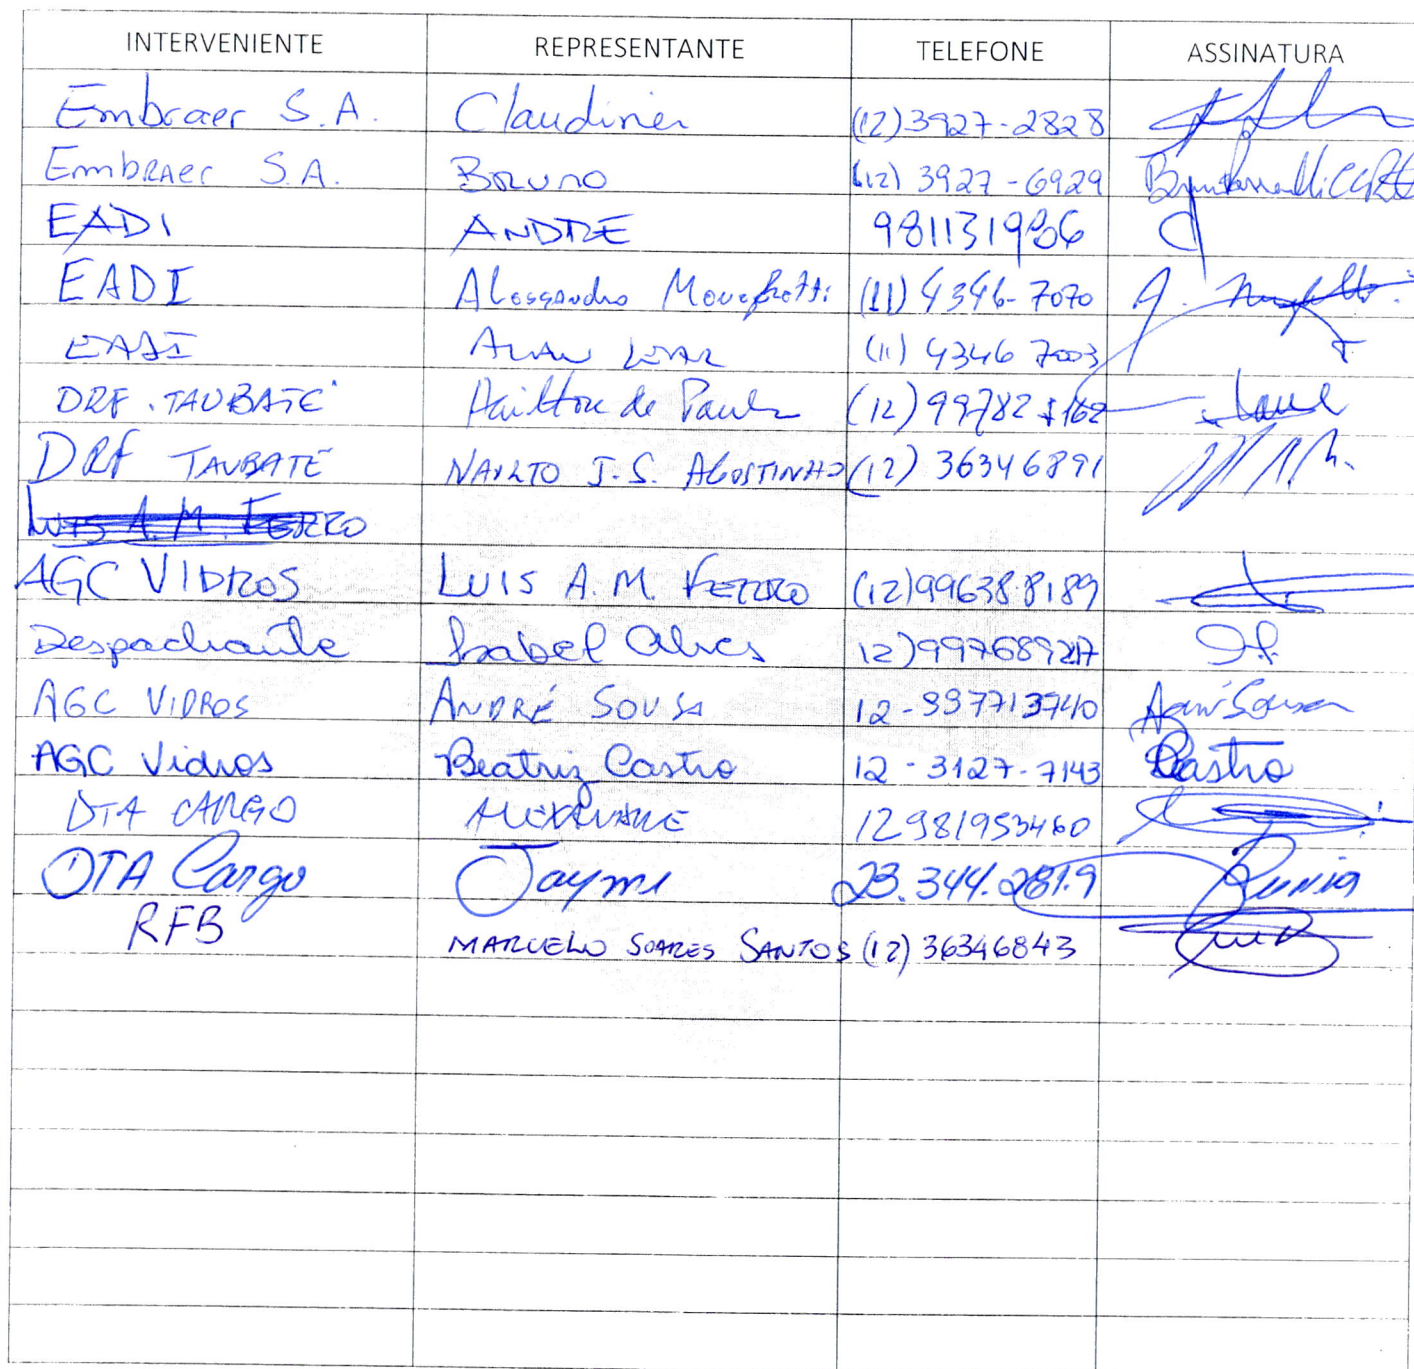 INTERVENIENTE REPRESENTANTE TELEFONE ASSINATURA
Embraer S.A. Claudinei (12)3927-2828
Embraer S.A. Bruno (12) 3927-6929
EADI ANDRE 981131986
EADI Alessandro (11) 4346-7070
EADI ALAN (11) 4346 7003
DRF. TAUBATÉ Hailton de Paula (12) 99782
DRF TAUBATÉ NAILTO J.S. AGOSTINHO (12) 36346891
LUIS A.M. FERRO
AGC VIDROS LUIS A.M. FERRO (12)996388189
Despachante Isabel Alves 12)
AGC VIDROS ANDRÉ SOUSA 12-997713740 André Sousa
AGC Vidros Beatriz Castro 12-3127-7143 BCastro
DTA CARGO ALEXANDRE 12981953460
DTA Cargo Jayme 23.344.281.9 Junior
RFB MARCELO SOARES SANTOS (12) 36346843